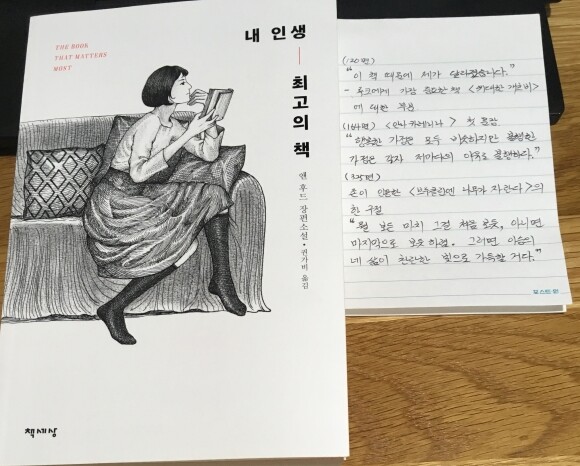 THE BOOK
THAT MATTERS
MOST
내 인생
최고의 책
앤 후드 장편소설 • 권가비 옮김
책세상
(120면)
"이 책 때문에 제가 달라졌습니다."
- 루크에게 가장 중요한 책 <위대한 개츠비>
에 대한
(164면) <안나 카레니나> 첫 문장
"행복한 가정은 모두 비슷하지만 불행한
가정은 각자 저마다의 이유로 불행하다."
(325면)
존이 인용한 <브루클린엔 나무가 자란다>의
한 구절
"뭘 보든 마치 그걸 처음 보듯, 아니면
마지막으로 보듯 하렴. 그러면 이승의
네 삶이 찬란한 빛으로 가득할 거다."
포스트-잇